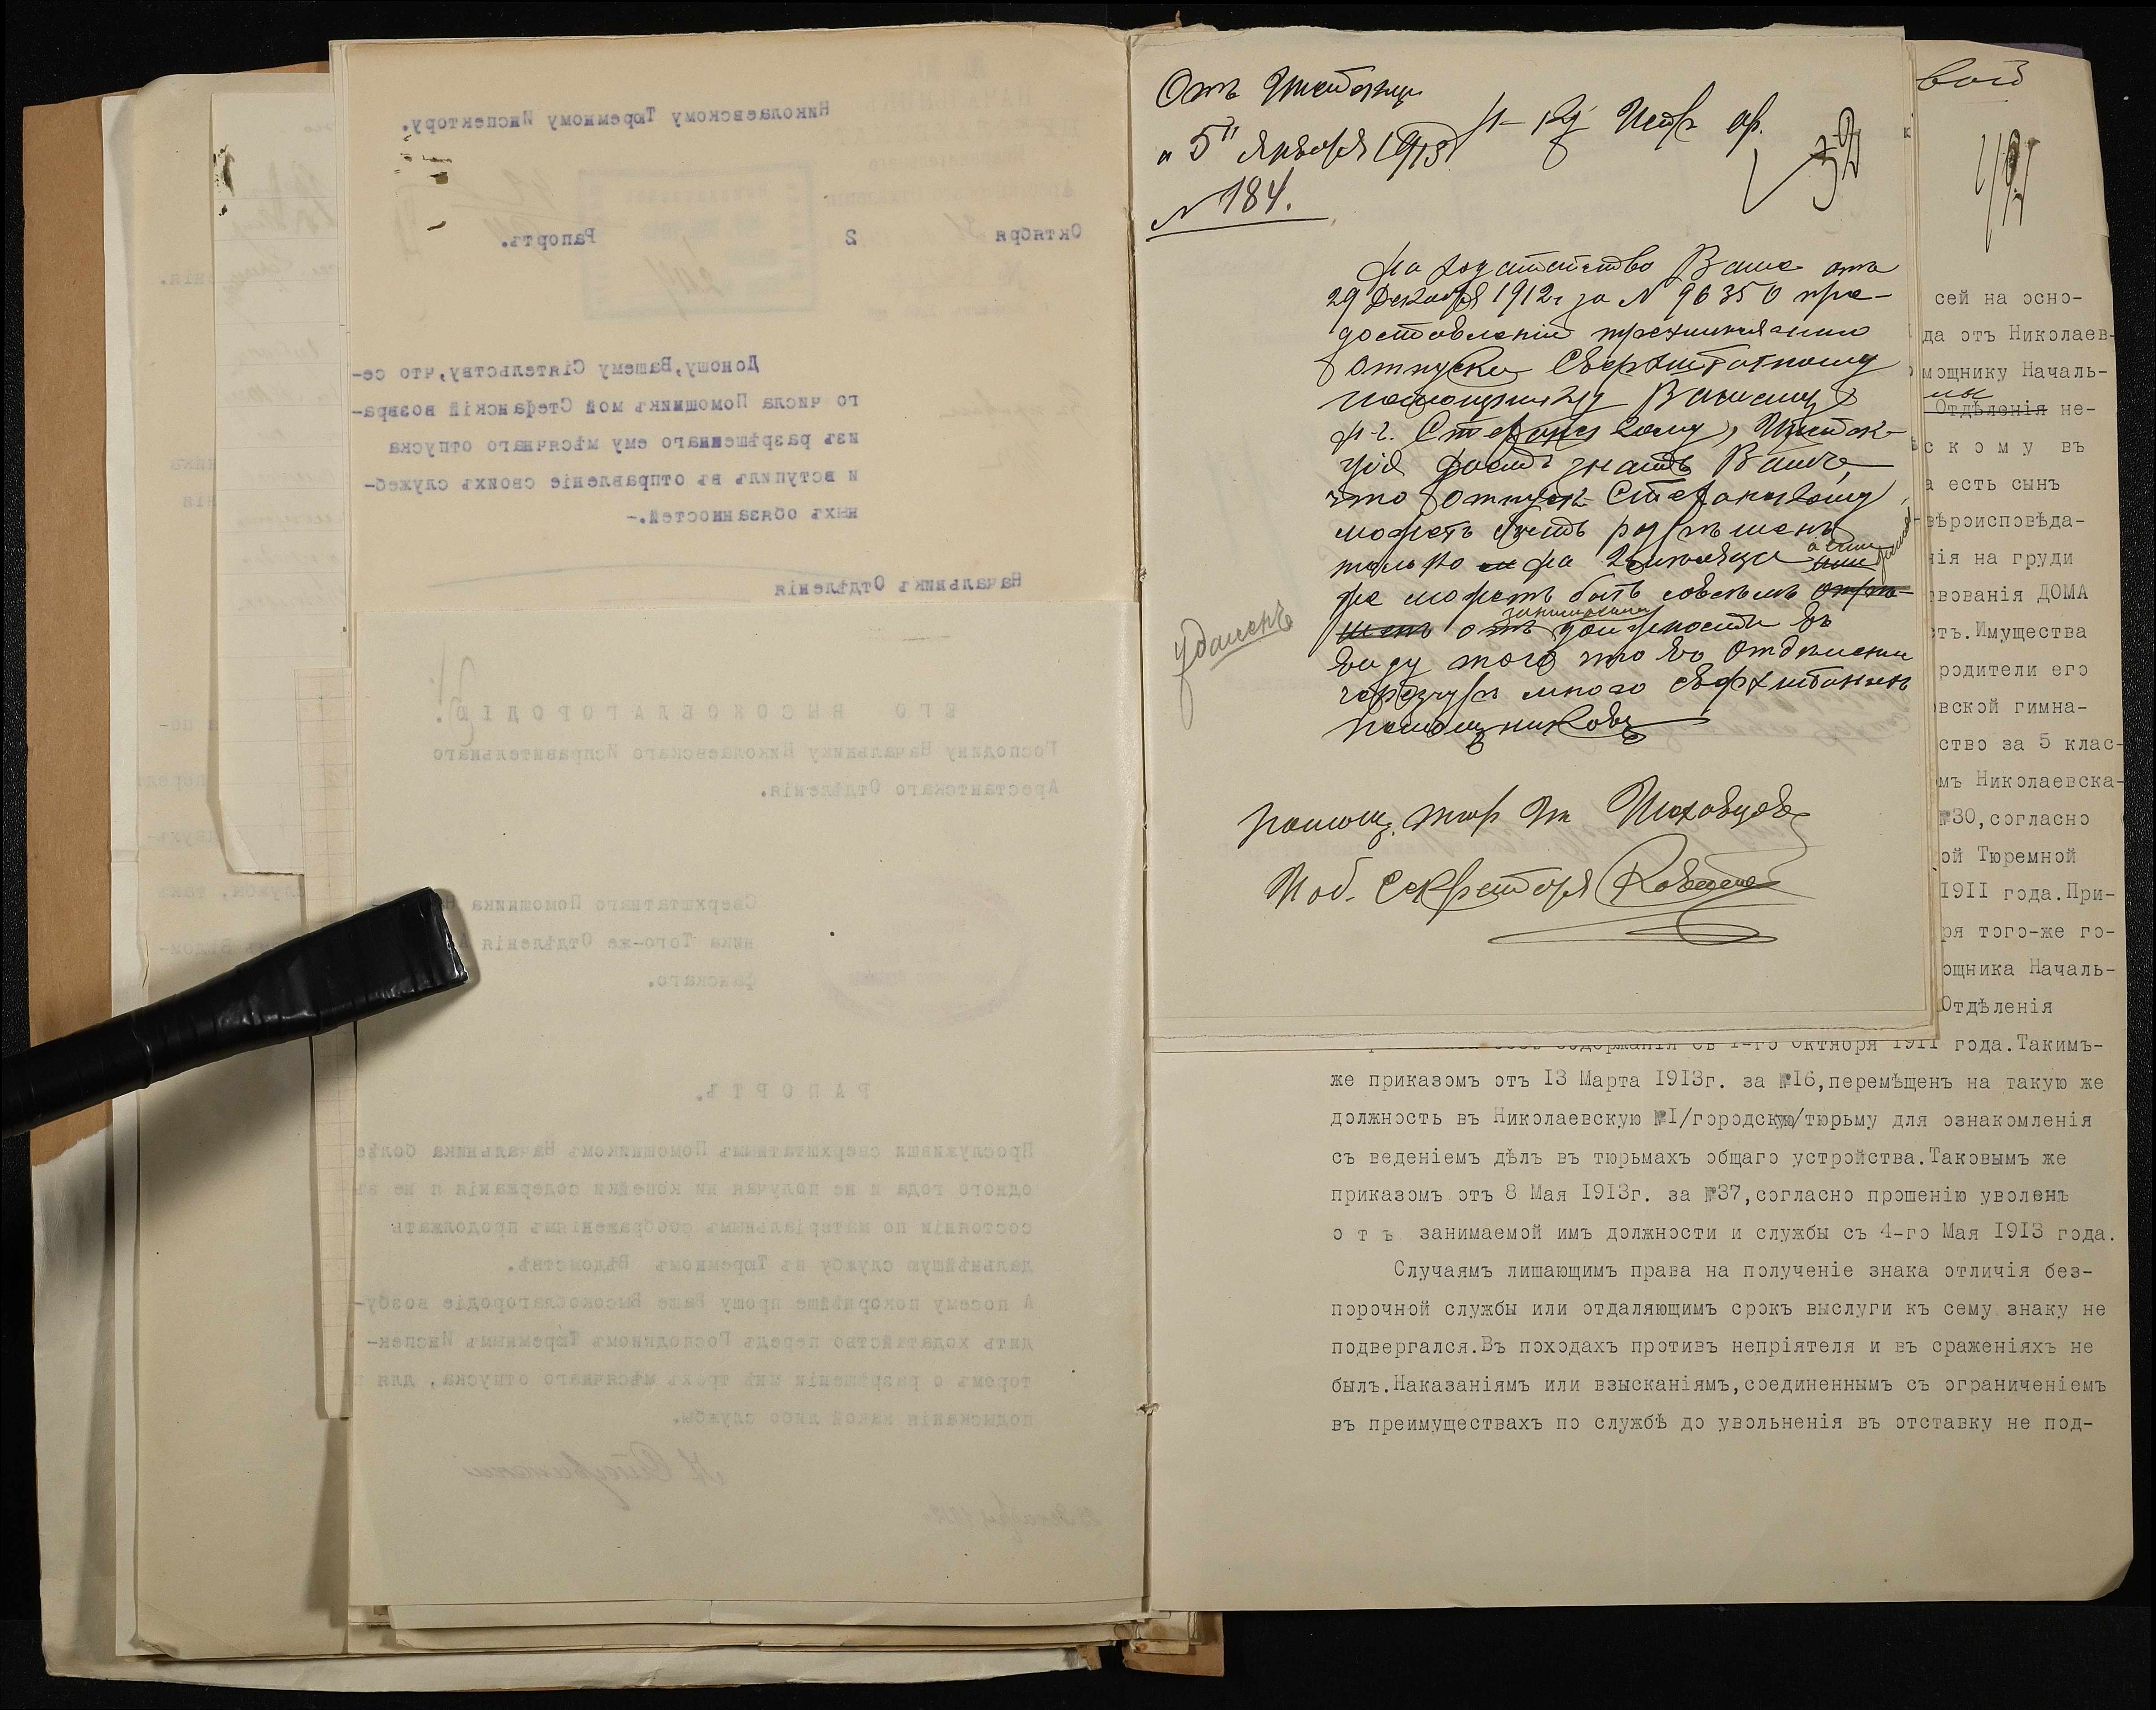 Николаевскому Тюремному Инспектору.
Октября 2 Рапортъ.
Доношу,Вашему Сіятельству,что се-
го числа Помощникъ мой Стефанскій возвра-
изъ разрѣшеннаго ему мѣсячнаго отпуска
и вступилъ въ отправленіе своихъ служеб-
ныхъ обязанностей.-
Начальникъ Отдѣленія
ЕГО ВЫСОКОБЛАГОРОДІЮ
Господину Начальнику Николаевскаго Исправительнаго
Арестантскаго Отдѣленія.
Сверхштатнаго Помощника На
ника Того-же Отдѣленія А
фанскаго.
РАПОРТЪ.
Прослуживши сверхштатнымъ Помощникомъ Начальника болѣе
одного года и не получая ни копейки содержанія и не въ
состояніи по матеріальнымъ соображеніямъ продолжать
дальнѣйшую службу въ Тюремномъ Вѣдомствѣ.
А посему покорнѣйше прошу Ваше Высокоблагородіе возбу-
дить ходатайство передъ Господиномъ Тюремнымъ Инспек-
торомъ о разрѣшеніи мнѣ трехъ мѣсячнаго отпуска, для п
подысканія какой либо службы.
Отъ
"5" Января 1913
№ 184.
32
На ходатайство Ваше отъ
29 Декабря 1912г за № 96350 пре-
доставленіи трехмѣсячнаго
отпуска Сверхштатному
помощнику Вашему
г. Стефанскому, Инспек-
ція даетъ знать Вамъ
что отпускъ Стефанскому
можетъ быть разрѣшенъ
только на 2 мѣсяца
же можетъ быть совсѣмъ
удаленъ
отъ занимаемой должности въ
виду того что въ Отдѣленіи
много сверхштатныхъ
помощниковъ
Помощ. тюр Ин
И об. Секретаря
вой
сей на осно-
да отъ Николаев-
мощнику Началь-
ны
Отдѣленія не-
скому въ
а есть сынъ
вѣроисповѣда-
нія на груди
вованія ДОМА
ть.Имущества
родители его
вской гимна-
ство за 5 клас-
мъ Николаевска-
№30,согласно
ой Тюремной
1911 года.При-
ря того-же го-
ощника Началь-
Отдѣленія
содержанія съ 1-го Октября 1911 года.Такимъ-
же приказомъ отъ 13 Марта 1913г. за №16,перемѣщенъ на такую же
должность въ Николаевскую №I/городскую/тюрьму для ознакомленія
съ веденіемъ дѣлъ въ тюрьмахъ общаго устройства.Таковымъ же
приказомъ отъ 8 Мая 1913г. за №37,согласно прошенію уволенъ
отъ занимаемой имъ должности и службы съ 4-го Мая 1913 года.
Случаямъ лишающимъ права на полученіе знака отличія без-
порочной службы или отдаляющимъ срокъ выслуги къ сему знаку не
подвергался.Въ походахъ противъ непріятеля и въ сраженіяхъ не
былъ.Наказаніямъ или взысканіямъ,соединеннымъ съ ограниченіемъ
въ преимуществахъ по службѣ до увольненія въ отставку не под-